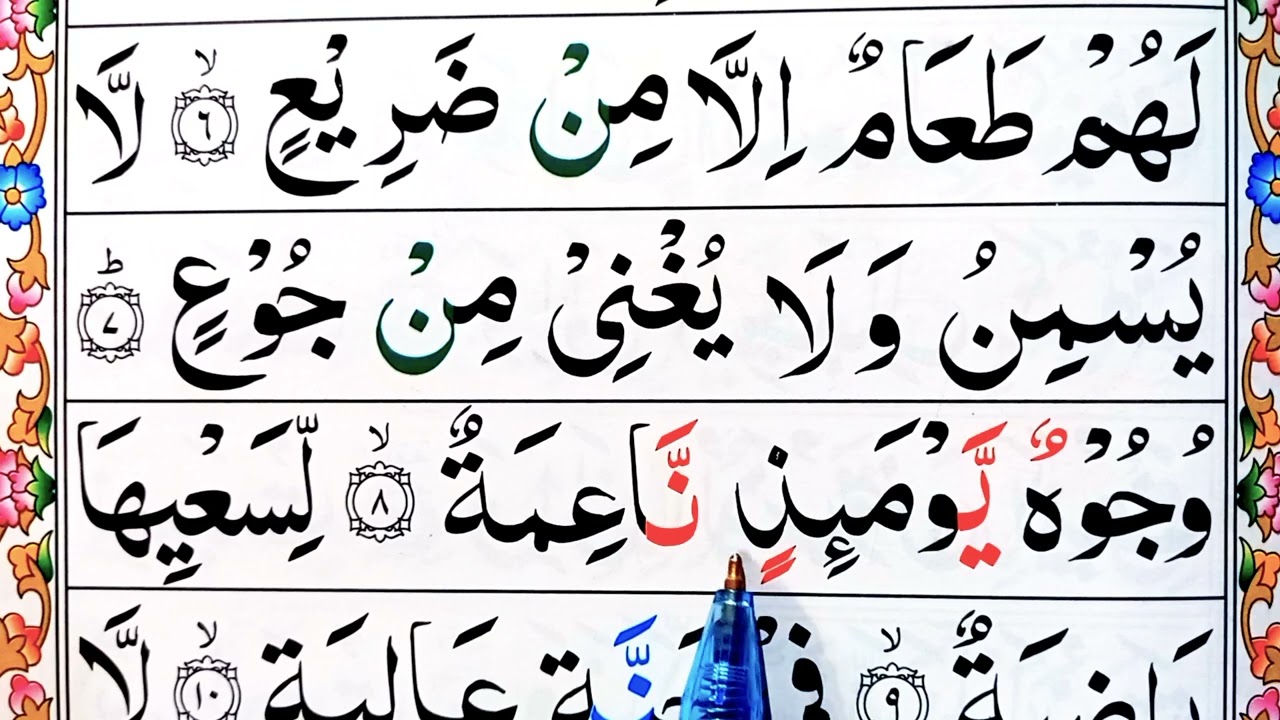 لَهُمْ طَعَامٌ اِلَّا مِنْ ضَرِيْعٍ ۙ‏﴿٦﴾ لَّا
يُسْمِنُ وَلَا يُغْنِىْ مِنْ جُوْعٍ ؕ‏﴿٧﴾
وُجُوْهٌ يَّوْمَئِذٍ نَّاعِمَةٌ ۙ‏﴿٨﴾ لِّسَعْيِهَا
رَاضِيَةٌ ۙ‏﴿٩﴾ فِىْ جَنَّةٍ عَالِيَةٍ ۙ‏﴿١٠﴾ لَّا